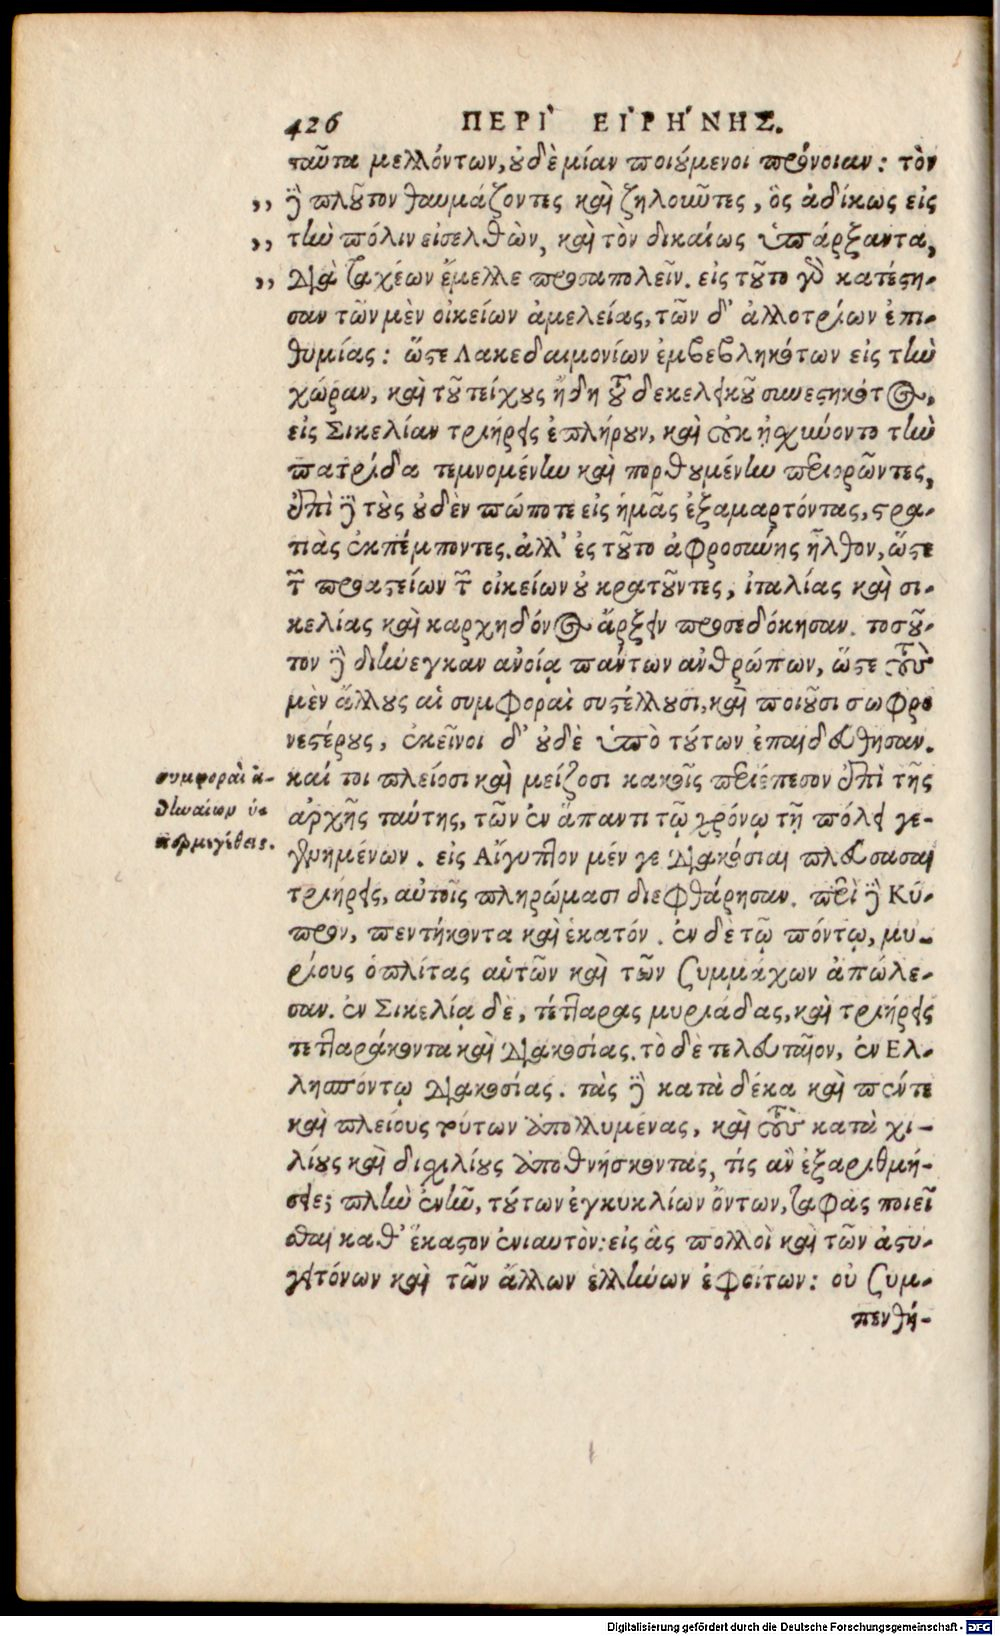 426 ΠΕΡΙ` ΕΙ᾿ΡΗ´ΝΗΣ.
ταῦτα μελλόντων, οὐδὲ μίαν ποιούμενοι πρόνοιαν: τὸν
,, ἢ πλοῦτον θαυμάζοντες καὶ ζηλοῦντες, ὃς ἀδίκως εἰς
,, τὴν πόλιν εἰσελθὼν, καὶ τὸν δικαίως ὑπάρξαντα,
,, διὰ ταχέων ἔμελλε προσαπολεῖν. εἰς τοῦτο γὰρ κατέστη-
σαν τῶν μὲν οἰκείων ἀμελείας, τῶν δ' ἀλλοτρίων ἐπι-
θυμίας: ὥστε Λακεδαιμονίων ἐμβεβληκότων εἰς τὴν
χώραν, καὶ τοῦ τείχους ἤδη τοῦ δεκελειοῦ συνεστηκότος,
εἰς Σικελίαν τριήρεις ἐπλήρουν, καὶ οὐκ ᾐσχύνοντο τὴν
πατρίδα τεμνομένην καὶ πορθουμένην περιορῶντες,
ἐπὶ δὲ τοὺς οὐδὲν πώποτε εἰς ἡμᾶς ἐξαμαρτόντας, στρα-
τιὰς ἐκπέμποντες. ἀλλ' ἐς τοῦτο ἀφροσύνης ἦλθον, ὥστε
τῶν προαστείων τῶν οἰκείων οὐ κρατοῦντες, ἰταλίας καὶ σι-
κελίας καὶ καρχηδόνος ἄρξειν προσεδόκησαν. τοσοῦ-
τον δὲ διήνεγκαν ἀνοίᾳ πάντων ἀνθρώπων, ὥστε τοὺς
μὲν ἄλλους αἱ συμφοραὶ συστέλλουσι, καὶ ποιοῦσι σωφρο
νεστέρους, ἐκεῖνοι δ' οὐδὲ ὑπὸ τούτων ἐπαιδεύθησαν.
συμφοραὶ ἀ-
θηναίων ὑ-
πὲρμεγέθεις.
καί τοι πλείοσι καὶ μείζοσι κακοῖς περιέπεσον ἐπὶ τῆς
ἀρχῆς ταύτης, τῶν ἐν ἅπαντι τῷ χρόνῳ τῇ πόλει γε-
γενημένων. εἰς Αἴγυπτον μέν γε διακόσιαι πλεύσασαι
τριήρεις, αὐτοῖς πληρώμασι διεφθάρησαν. περὶ δὲ Κύ-
προν, πεντήκοντα καὶ ἑκατόν. ἐν δὲ τῷ πόντῳ, μυ-
ρίους ὁπλίτας αὑτῶν καὶ τῶν ξυμμάχων ἀπώλε-
σαν. ἐν Σικελίᾳ δὲ, τέτταρας μυριάδας, καὶ τριήρεις
τετταράκοντα καὶ διακοσίας. τὸ δὲ τελευταῖον, ἐν Ελ-
λησπόντῳ διακοσίας. τὰς δὲ κατὰ δέκα καὶ πέντε
καὶ πλείους τούτων ἀπολλυμένας, καὶ τοὺς κατὰ χι-
λίους καὶ δισχιλίους ἀποθνήσκοντας, τίς ἂν ἐξαριθμή-
σειε; πλὴν ἓν ἦν, τούτων ἐγκυκλίων ὄντων, ταφὰς ποιεῖ
σθαι καθ' ἕκαστον ἐνιαυτὸν: εἰς ἃς πολλοὶ καὶ τῶν ἀστυ-
γειτόνων καὶ τῶν ἄλλων ἑλλήνων ἐφοίτων: οὐ ξυμ-
πενθή-
Digitalisierung gefördert durch die Deutsche Forschungsgemeinschaft - DFG